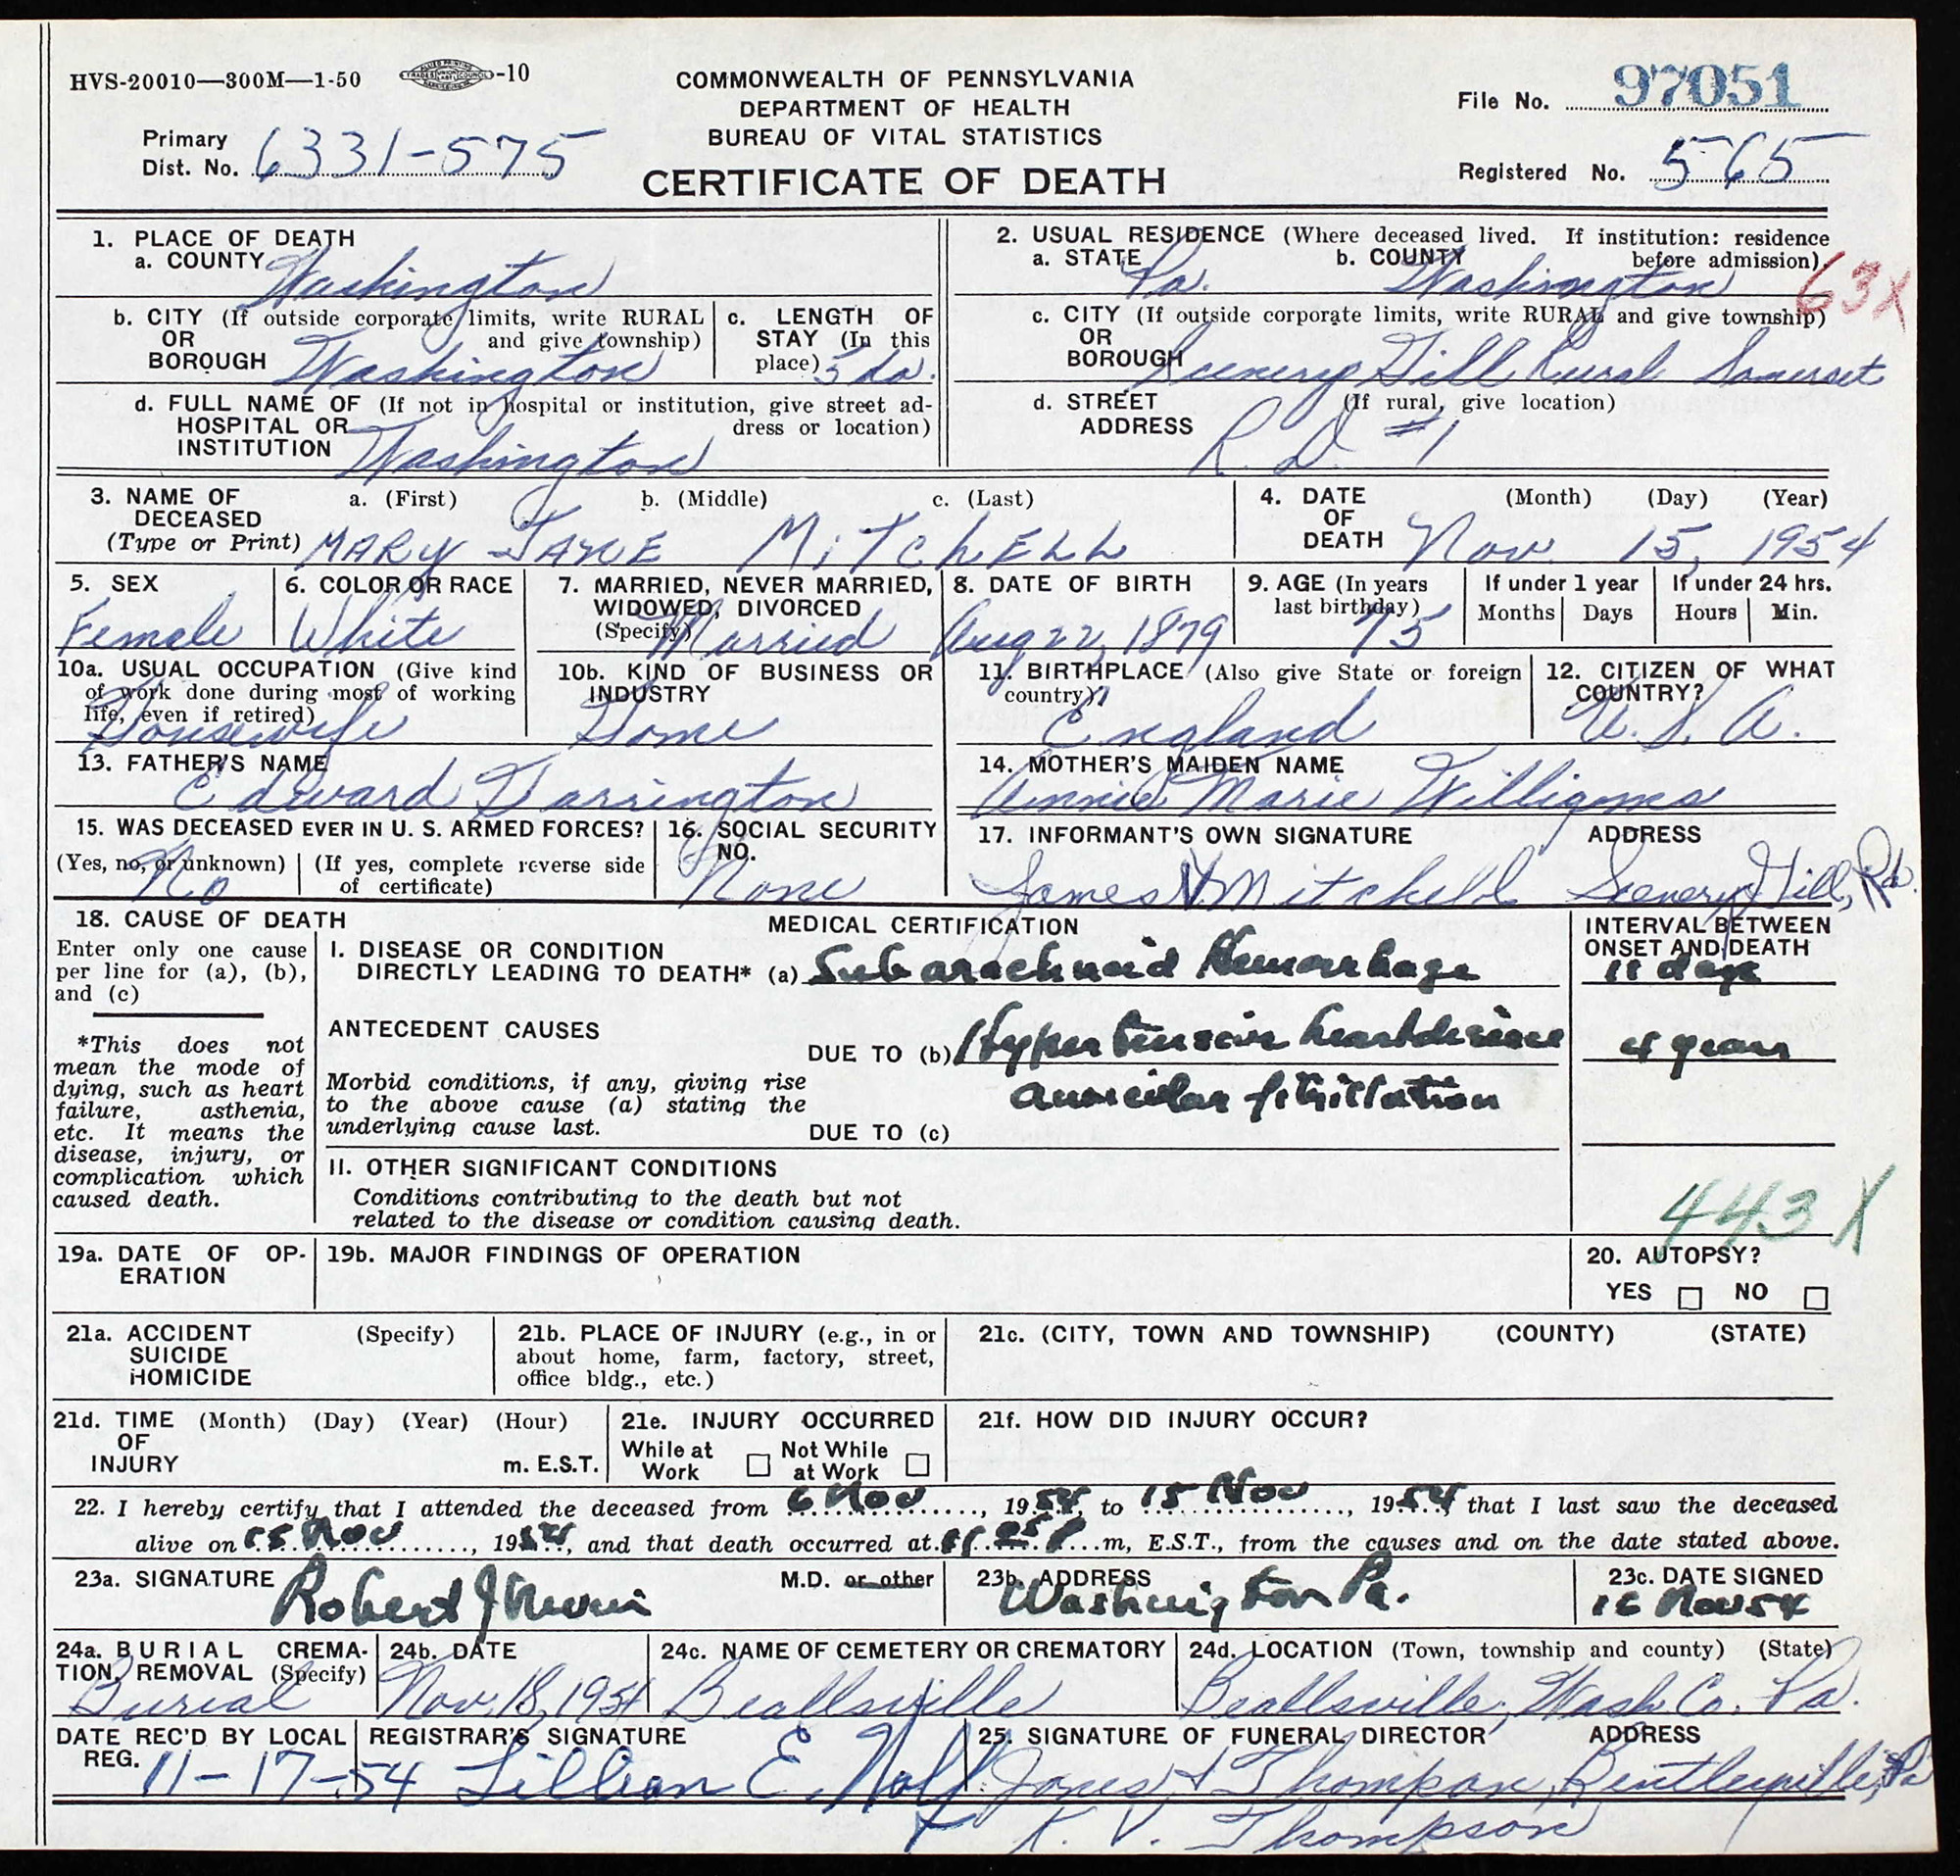 HVS-20010—300M—1-50 -10
COMMONWEALTH OF PENNSYLVANIA
DEPARTMENT OF HEALTH
BUREAU OF VITAL STATISTICS
CERTIFICATE OF DEATH
File No. 97051
Primary
Dist. No. 6331-575
Registered No. 565
1. PLACE OF DEATH
a. COUNTY Washington
b. CITY (If outside corporate limits, write RURAL
OR and give township)
BOROUGH Washington
c. LENGTH OF
STAY (In this
place) 5 da.
d. FULL NAME OF (If not in hospital or institution, give street ad-
HOSPITAL OR dress or location)
INSTITUTION Washington
2. USUAL RESIDENCE (Where deceased lived. If institution: residence
a. STATE Pa. b. COUNTY Washington before admission).
63X
c. CITY (If outside corporate limits, write RURAL and give township)
OR
BOROUGH Scenery Hill Rural Somerset
d. STREET (If rural, give location)
ADDRESS R. D. #1
3. NAME OF a. (First) b. (Middle) c. (Last)
DECEASED
(Type or Print) MARY JANE MITCHELL
4. DATE (Month) (Day) (Year)
OF
DEATH Nov. 15, 1954
5. SEX
Female
6. COLOR OR RACE
White
7. MARRIED, NEVER MARRIED,
WIDOWED, DIVORCED
(Specify) Married
8. DATE OF BIRTH
Aug 22, 1879
9. AGE (In years
last birthday) 75
If under 1 year
Months Days
If under 24 hrs.
Hours Min.
10a. USUAL OCCUPATION (Give kind
of work done during most of working
life, even if retired)
Housewife
10b. KIND OF BUSINESS OR
INDUSTRY
Home
11. BIRTHPLACE (Also give State or foreign
country)
England
12. CITIZEN OF WHAT
COUNTRY?
U. S. A.
13. FATHER'S NAME
Edward Tarrington
14. MOTHER'S MAIDEN NAME
Annie Marie Williams
15. WAS DECEASED EVER IN U. S. ARMED FORCES?
(Yes, no, or unknown) (If yes, complete reverse side
No of certificate)
16. SOCIAL SECURITY
NO.
None
17. INFORMANT'S OWN SIGNATURE ADDRESS
James Mitchell Scenery Hill, Pa.
18. CAUSE OF DEATH
Enter only one cause
per line for (a), (b),
and (c)
*This does not
mean the mode of
dying, such as heart
failure, asthenia,
etc. It means the
disease, injury, or
complication which
caused death.
MEDICAL CERTIFICATION
I. DISEASE OR CONDITION
DIRECTLY LEADING TO DEATH* (a) Subarachnoid Hemorrhage
ANTECEDENT CAUSES
DUE TO (b) Hypertension heart disease
Morbid conditions, if any, giving rise
to the above cause (a) stating the
underlying cause last.
auricular fibrillation
DUE TO (c)
II. OTHER SIGNIFICANT CONDITIONS
Conditions contributing to the death but not
related to the disease or condition causing death.
INTERVAL BETWEEN
ONSET AND DEATH
11 days
4 years
443 X
19a. DATE OF OP-
ERATION
19b. MAJOR FINDINGS OF OPERATION
20. AUTOPSY?
YES NO
21a. ACCIDENT (Specify)
SUICIDE
HOMICIDE
21b. PLACE OF INJURY (e.g., in or
about home, farm, factory, street,
office bldg., etc.)
21c. (CITY, TOWN AND TOWNSHIP) (COUNTY) (STATE)
21d. TIME (Month) (Day) (Year) (Hour)
OF
INJURY m. E.S.T.
21e. INJURY OCCURRED
While at Not While
Work at Work
21f. HOW DID INJURY OCCUR?
22. I hereby certify that I attended the deceased from 6 Nov, 1954, to 15 Nov, 1954 that I last saw the deceased
alive on 15 Nov, 1954, and that death occurred at m, E.S.T., from the causes and on the date stated above.
23a. SIGNATURE M.D. or other
Robert J
23b. ADDRESS
Washington Pa.
23c. DATE SIGNED
16 Nov 54
24a. BURIAL CREMA-
TION, REMOVAL (Specify)
Burial
24b. DATE
Nov. 18, 1954
24c. NAME OF CEMETERY OR CREMATORY
Beallsville
24d. LOCATION (Town, township and county) (State)
Beallsville, Wash. Co. Pa.
DATE REC'D BY LOCAL
REG. 11-17-54
REGISTRAR'S SIGNATURE
Lillian E. Wolf
25. SIGNATURE OF FUNERAL DIRECTOR ADDRESS
Jones & Thompson, Bentleyville, Pa
K. V. Thompson